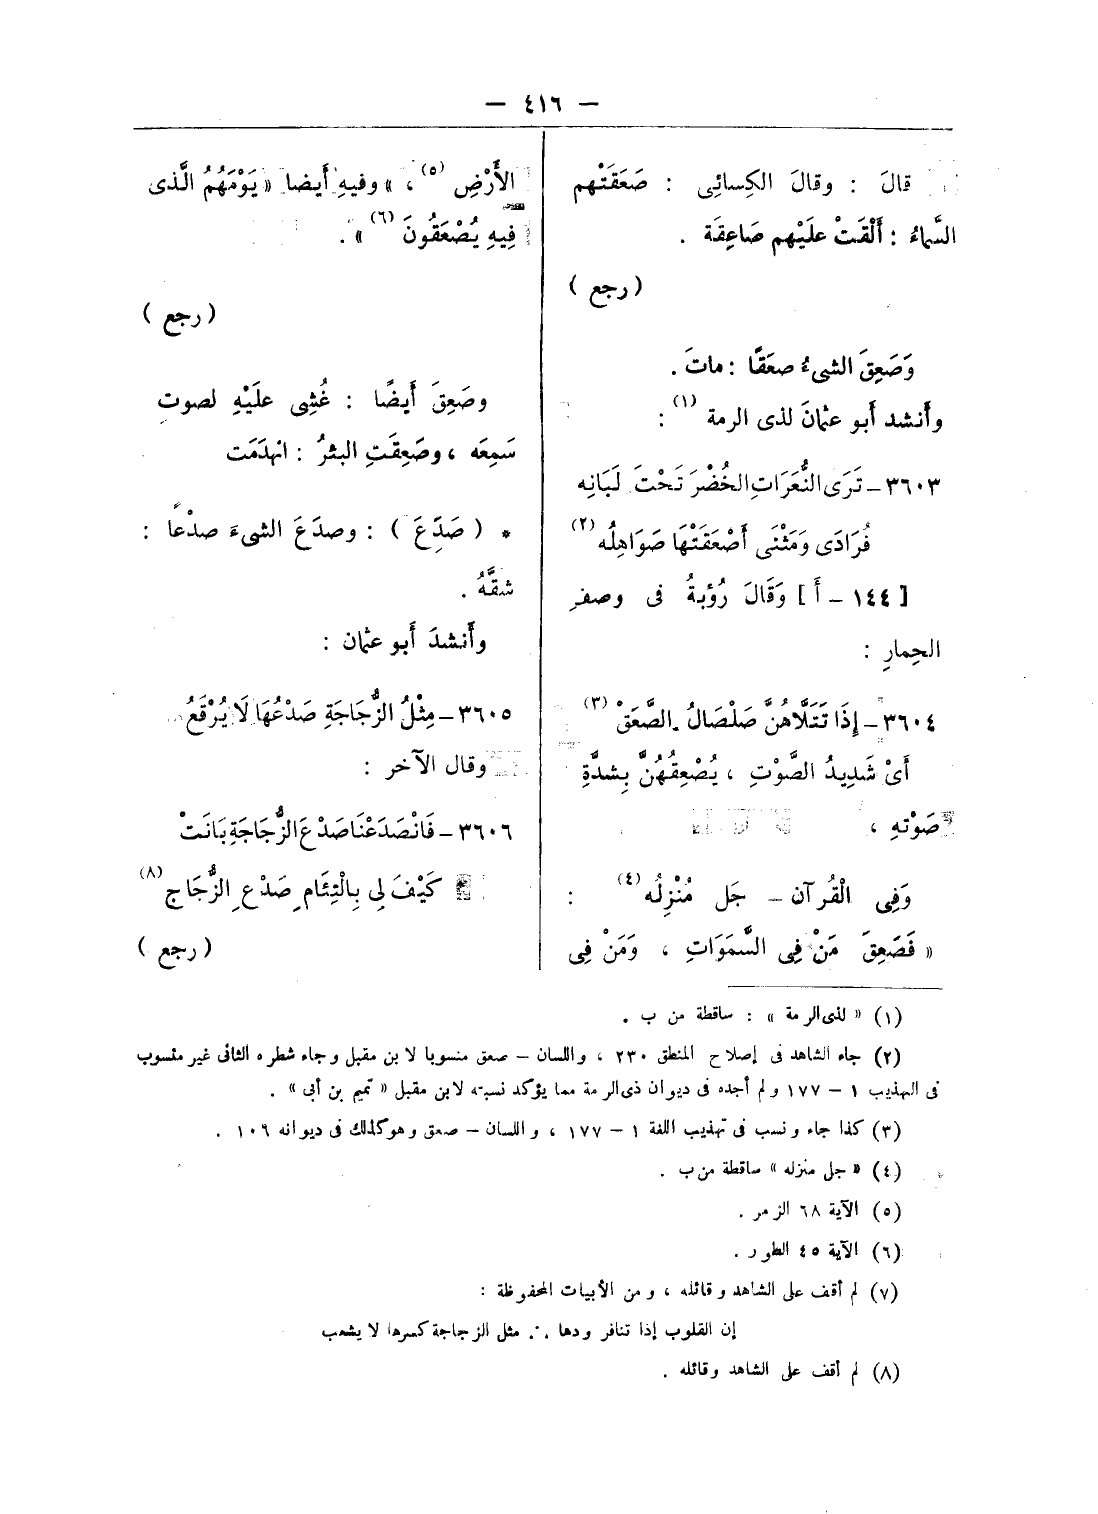 — ٤١٦ —
قالَ : وقالَ الكِسائِى : صَعَقَتْهم
السَّماءُ : أَلْقَتْ علَيْهم صَاعِقَة .
( رجع )
وَصَعِقَ الشىءُ صعَقًا : ماتَ .
وأَنشد أَبو عثمانَ لذى الرمة (١) :
٣٦٠٣ – تَرَى النُّعَرَاتِ الخُضْرَ تَحْتَ لَبَانِه
فُرَادَى وَمَثْنَى أَصْعَقَتْهَا صَوَاهِلُه (٢)
[ ١٤٤ – أ ] وَقَالَ رُؤبةُ فى وصفِ
الحِمارِ :
٣٦٠٤ – إِذَا تَتَلَّاهُنَّ صَلْصَالُ الصَّعَقْ (٣)
أَىْ شَدِيدُ الصَّوْتِ ، يُصْعِقُهُنَّ بِشدَّةِ
صَوْتهِ ،
وَفِى الْقُرآن – جَل مُنْزِلُه (٤) :
« فَصَعِقَ مَنْ فِى السَّمَوَاتِ ، وَمَنْ فِى
الأَرْضِ (٥) ، » وفيهِ أَيضا « يَوْمَهُمُ الَّذى
فِيهِ يُصْعَقُونَ (٦) » .
( رجع )
وصَعِقَ أَيضًا : غُشِى علَيْهِ لصوتٍ
سَمِعَه ، وصَعِقَتِ البئرُ : انْهدَمَت
* ( صَدَعَ ) : وصدَعَ الشىءَ صدْعاً :
شقَّهُ .
وأَنشدَ أَبو عثمان :
٣٦٠٥ – مِثْلُ الزُّجَاجَةِ صَدْعُهَا لَا يُرْقَعُ
وقال الآخر :
٣٦٠٦ – فَانْصَدَعْنَا صَدْعَ الزُّجَاجَةِ بَانَتْ
كَيْفَ لِى بِالْتِئَامِ صَدْعِ الزُّجَاجِ (٨)
( رجع )
(١) « لذى الرمة » : ساقطة من ب .
(٢) جاء الشاهد فى إصلاح المنطق ٢٣٠ ، واللسان – صعق منسوبا لابن مقبل وجاء شطره الثانى غير منسوب
فى التهذيب ١ – ١٧٧ ولم أجده فى ديوان ذى الرمة مما يؤكد نسبته لابن مقبل « تميم بن أبى » .
(٣) كذا جاء ونسب فى تهذيب اللغة ١ – ١٧٧ ، واللسان – صعق وهو كذلك فى ديوانه ١٠٦ .
(٤) « جل منزله » ساقطة من ب .
(٥) الآية ٦٨ الزمر .
(٦) الآية ٤٥ الطور .
(٧) لم أقف على الشاهد وقائله ، ومن الأبيات المحفوظة :
إن القلوب إذا تنافر ودها ∴ مثل الزجاجة كسرها لا يشعب
(٨) لم أقف على الشاهد وقائله .